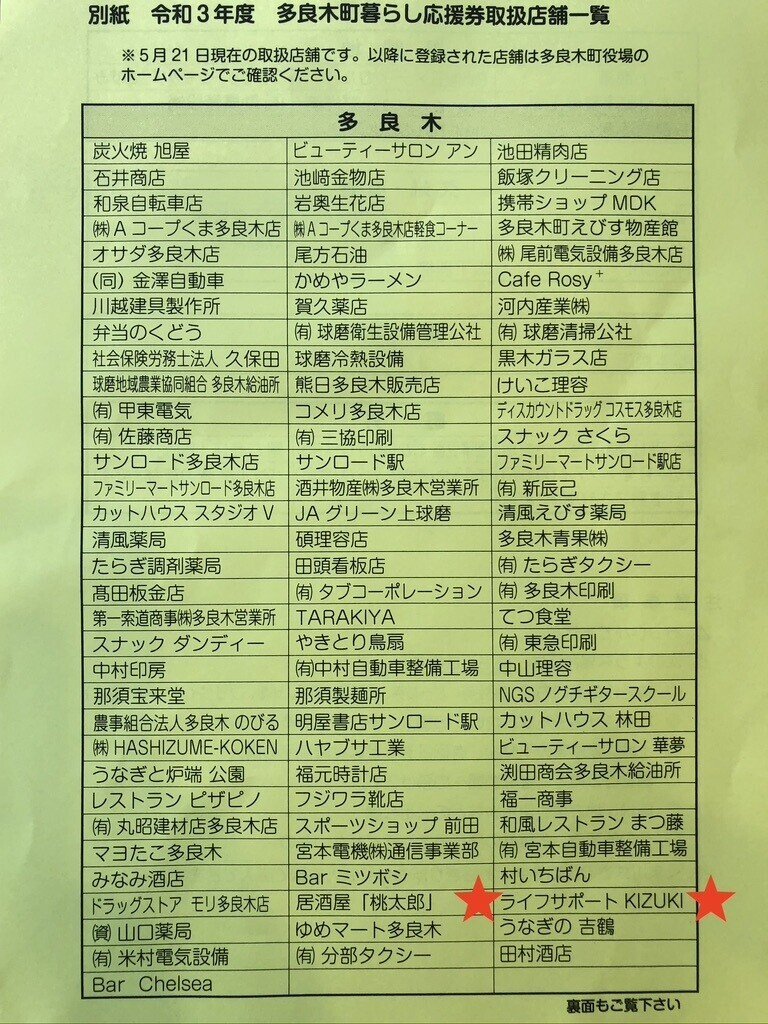 別紙 令和３年度 多良木町暮らし応援券取扱店舗一覧
※５月21日現在の取扱店舗です。以降に登録された店舗は多良木町役場の
ホームページでご確認ください。
多 良 木
炭火焼 旭屋 ビューティーサロン アン 池田精肉店
石井商店 池﨑金物店 飯塚クリーニング店
和泉自転車店 岩奥生花店 携帯ショップ MDK
㈱Ａコープくま多良木店 ㈱Ａコープくま多良木店軽食コーナー 多良木町えびす物産館
オサダ多良木店 尾方石油 ㈱ 尾前電気設備多良木店
(同) 金澤自動車 かめやラーメン Cafe Rosy⁺
川越建具製作所 賀久薬店 河内産業㈱
弁当のくどう ㈲ 球磨衛生設備管理公社 ㈲ 球磨清掃公社
社会保険労務士法人 久保田 球磨冷熱設備 黒木ガラス店
球磨地域農業協同組合 多良木給油所 熊日多良木販売店 けいこ理容
㈲ 甲東電気 コメリ多良木店 ディスカウントドラッグ コスモス多良木店
㈲ 佐藤商店 ㈲ 三協印刷 スナック さくら
サンロード多良木店 サンロード駅 ファミリーマートサンロード駅店
ファミリーマートサンロード多良木店 酒井物産㈱多良木営業所 ㈲ 新辰己
カットハウス スタジオＶ JA グリーン上球磨 清風えびす薬局
清風薬局 碩理容店 多良木青果㈱
たらぎ調剤薬局 田頭看板店 ㈲ たらぎタクシー
髙田板金店 ㈲ タブコーポレーション ㈲ 多良木印刷
第一索道商事㈱多良木営業所 TARAKIYA てつ食堂
スナック ダンディー やきとり鳥扇 ㈲ 東急印刷
中村印房 ㈲中村自動車整備工場 中山理容
那須宝来堂 那須製麺所 NGS ノグチギタースクール
農事組合法人多良木 のびる 明屋書店サンロード駅 カットハウス 林田
㈱ HASHIZUME-KOKEN ハヤブサ工業 ビューティーサロン 華夢
うなぎと炉端 公園 福元時計店 渕田商会多良木給油所
レストラン ピザピノ フジワラ靴店 福一商事
㈲ 丸昭建材店多良木店 スポーツショップ 前田 和風レストラン まつ藤
マヨたこ多良木 宮本電機㈱通信事業部 ㈲ 宮本自動車整備工場
みなみ酒店 Bar ミツボシ 村いちばん
ドラッグストア モリ多良木店 居酒屋「桃太郎」 ライフサポート KIZUKI
㈾ 山口薬局 ゆめマート多良木 うなぎの 吉鶴
㈲ 米村電気設備 ㈲ 分部タクシー 田村酒店
Bar Chelsea
裏面もご覧下さい